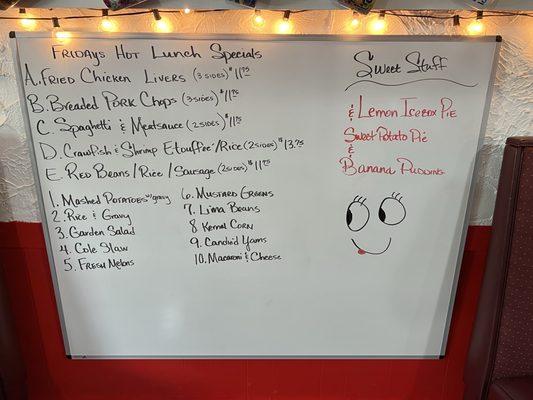 Fridays Hot Lunch Specials
A. Fried Chicken Livers (3 sides) $11.75
B. Breaded Pork Chops (3 sides) $11.75
C. Spaghetti & Meatsauce (2 sides) $11.75
D. Crawfish & Shrimp Etouffee'/Rice (2 sides) $13.75
E. Red Beans/Rice/Sausage (2 sides) $11.75
1. Mashed Potatoes w/gravy
2. Rice & Gravy
3. Garden Salad
4. Cole Slaw
5. Fresh Melons
6. Mustard Greens
7. Lima Beans
8 Kernal Corn
9. Candid Yams
10. Macaroni & Cheese
Sweet Stuff
& Lemon Icebox Pie
Sweet Potato Pie
&
Banana Pudding